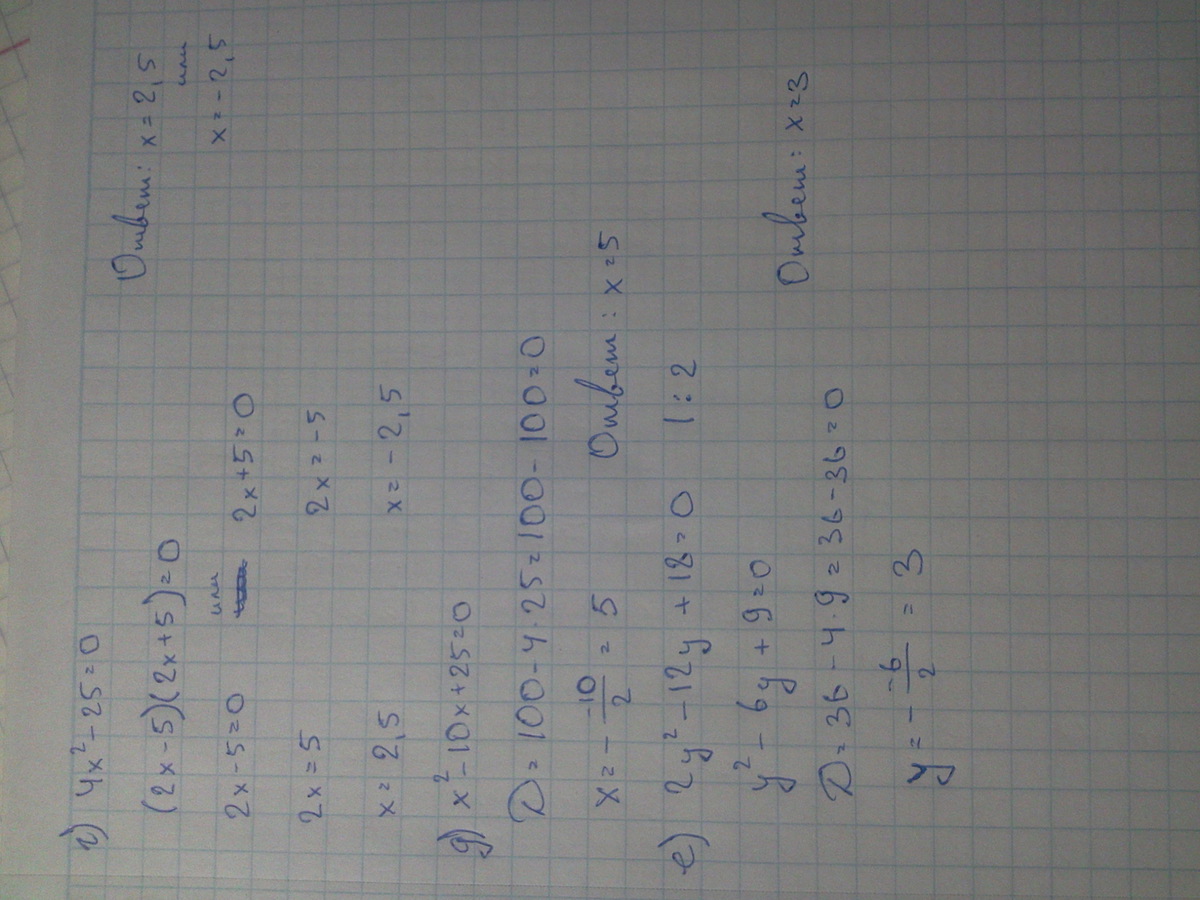 г) 4x² - 25 = 0
(2x - 5)(2x + 5) = 0
2x - 5 = 0 или 2x + 5 = 0
2x = 5 2x = -5
x = 2,5 x = -2,5
Ответ: x = 2,5
или
x = -2,5
д) x² - 10x + 25 = 0
D = 100 - 4 · 25 = 100 - 100 = 0
x = - -10/2 = 5 Ответ: x = 5
е) 2y² - 12y + 18 = 0 | : 2
y² - 6y + 9 = 0
D = 36 - 4 · 9 = 36 - 36 = 0
y = - -6/2 = 3
Ответ: x = 3